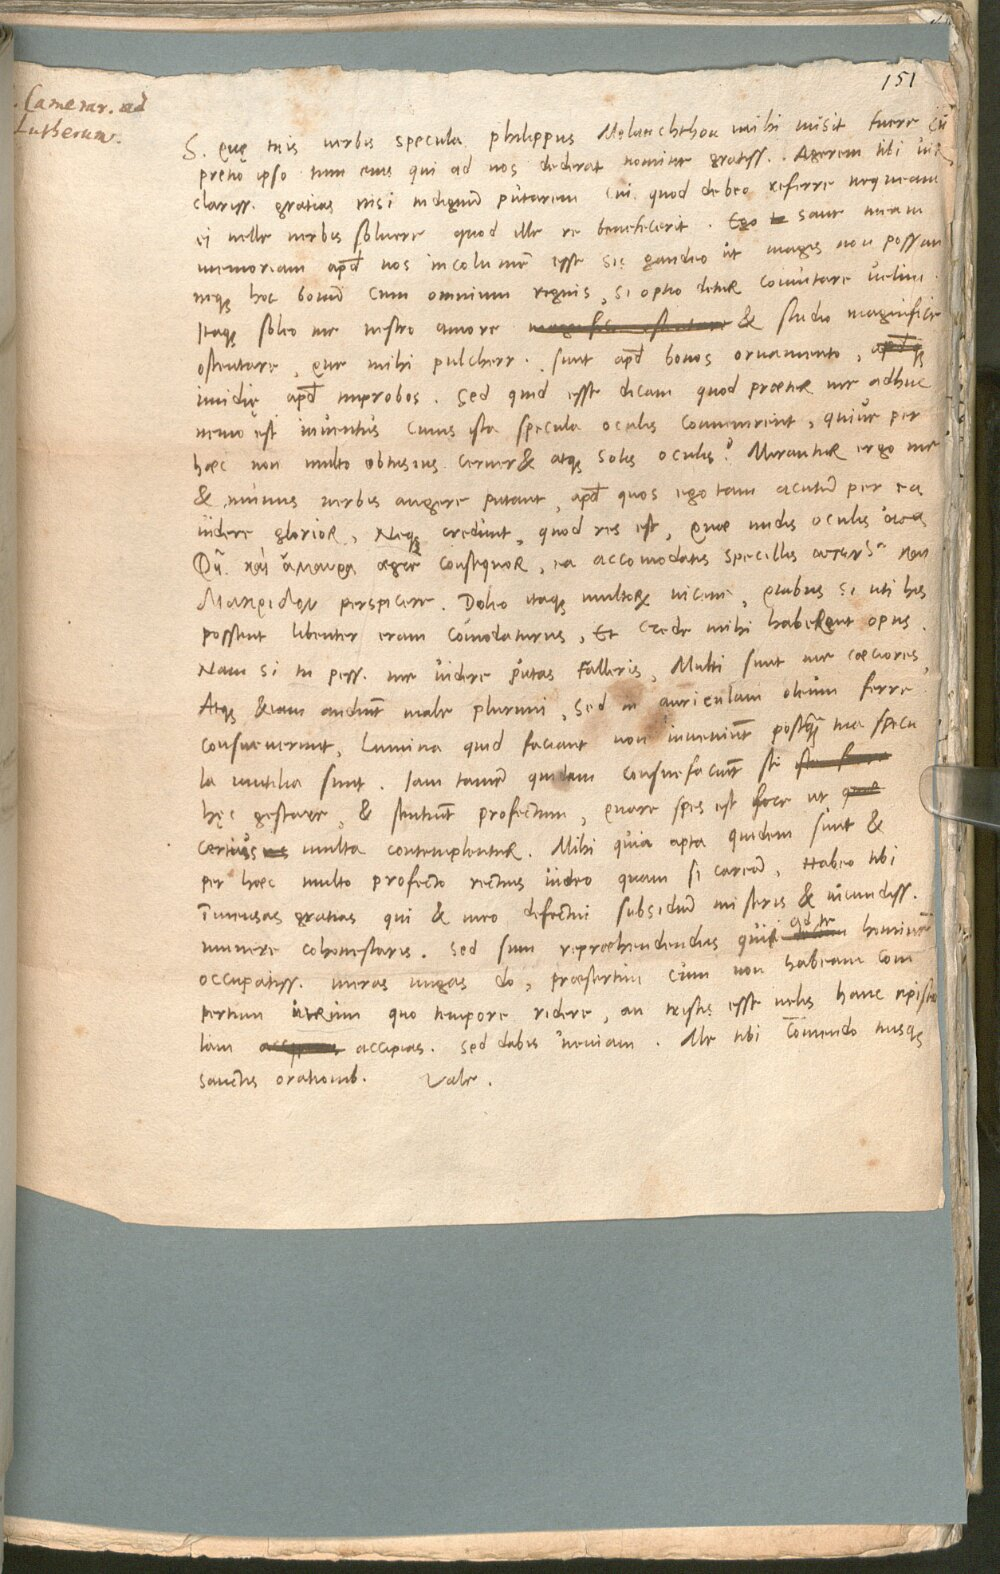 151
Camerar. ad
Lutherum.
S. Quę tuis verbis specula philippus Melanchthon mihi misit fuere cū
pretio ipso tum eius qui ad nos dederat nomine gratiss. Agerem tibi vir
clariss. gratias nisi indignū putarem cui quod debeo referre nequeam
ei velle verbis solvere quod ille re benefecerit. Ego sane meam
memoriam apd vos incolumē esse sic gaudeo ut magis non possim
neqꝫ hoc bonū cum omnium regnis, si optio detur comutare velim.
Itaqꝫ soleo me vestro amore & studio magnifice
ostentare, que mihi pulcherr. sunt apd bonos ornamento,
invidię apd improbos. Sed quid esse dicam quod praeter me adhuc
nemo est inventus cuius ista specula oculis convenirent, quive per
haec non multo obtusius cerneret atqꝫ solis oculis? Mirantur ergo me
& minus verbis augere putant, apd quos ego tam acutū per ea
videre glorior, Neqꝫ credunt, quod res est, quae nudis oculis
καὶ ἀμαυρὰ aegre consequor, ea accomodatis specillis
perspicere. Doleo itaqꝫ multorum vicem, quibus si uti his
possent libenter eram comodaturus, Et crede mihi haberent opus.
Nam si tu pess. me videre putas falleris, Multi sunt me caeciores,
Atqꝫ etiam audiūt male plurimi, sed in auriculam oleum ferre
consueverunt, Lumina quid faciant non inveniūt postqꝫ tua specu
la inutilia sunt. Iam tamen quidam consuefaciūt se
hęc gestare, & sentiūt profectum, quare spes est fore ut
certius multa contemplentur. Mihi quia apta quidem sunt &
per haec multo profecto rectius video quam si careā, Habeo tibi
īmensas gratias qui & meo defectui subsidiū miseris & iucundiss.
munere cohonestaris. Sed sum repraehendendus qui ad te hominē
occupatiss. meras nugas do, praesertim cum non habeam com
pertum utrum quo tempore ridere, an tristis esse velis hanc episto
lam accipias. Sed dabis veniam. Me tibi comendo tuisqꝫ
sanctis orationib. Vale.